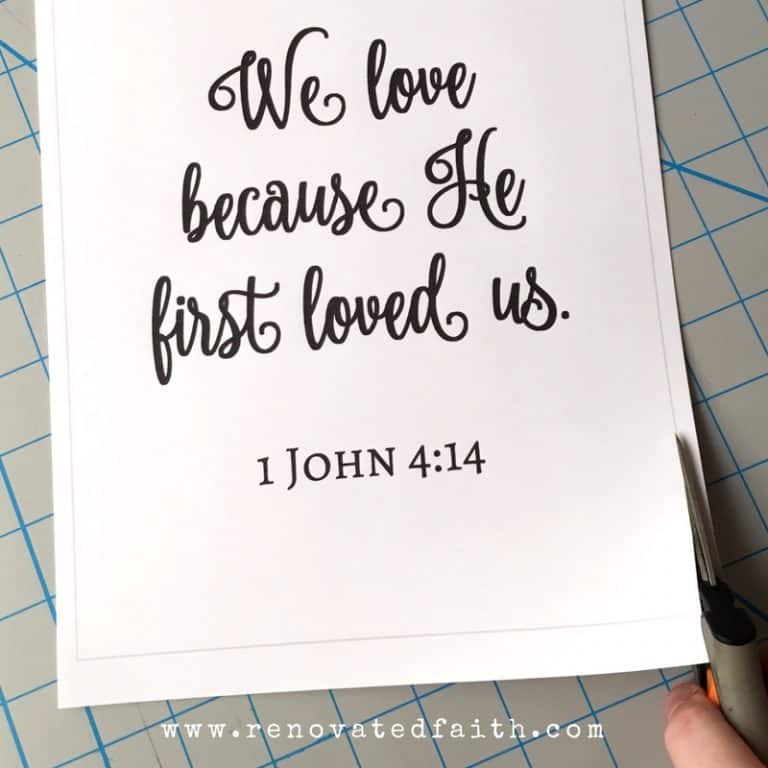 We love
because He
first loved us.
1 John 4:14
www.renovatedfaith.com